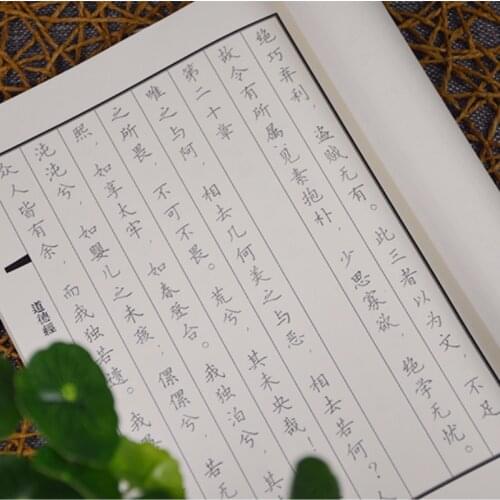 绝巧弃利，盗贼无有。此三者以为文，不足
故令有所属，见素抱朴，少思寡欲，绝学无忧。
第二十章
唯之与阿，相去几何美之与恶，相去若何？人
之所畏，不可不畏。荒兮，其未央哉！
熙，如享太牢，如春登台。我独泊兮，
沌沌兮，如婴儿之未孩，傫傫兮，若无
众人皆有余，而我独若遗。我
道德經